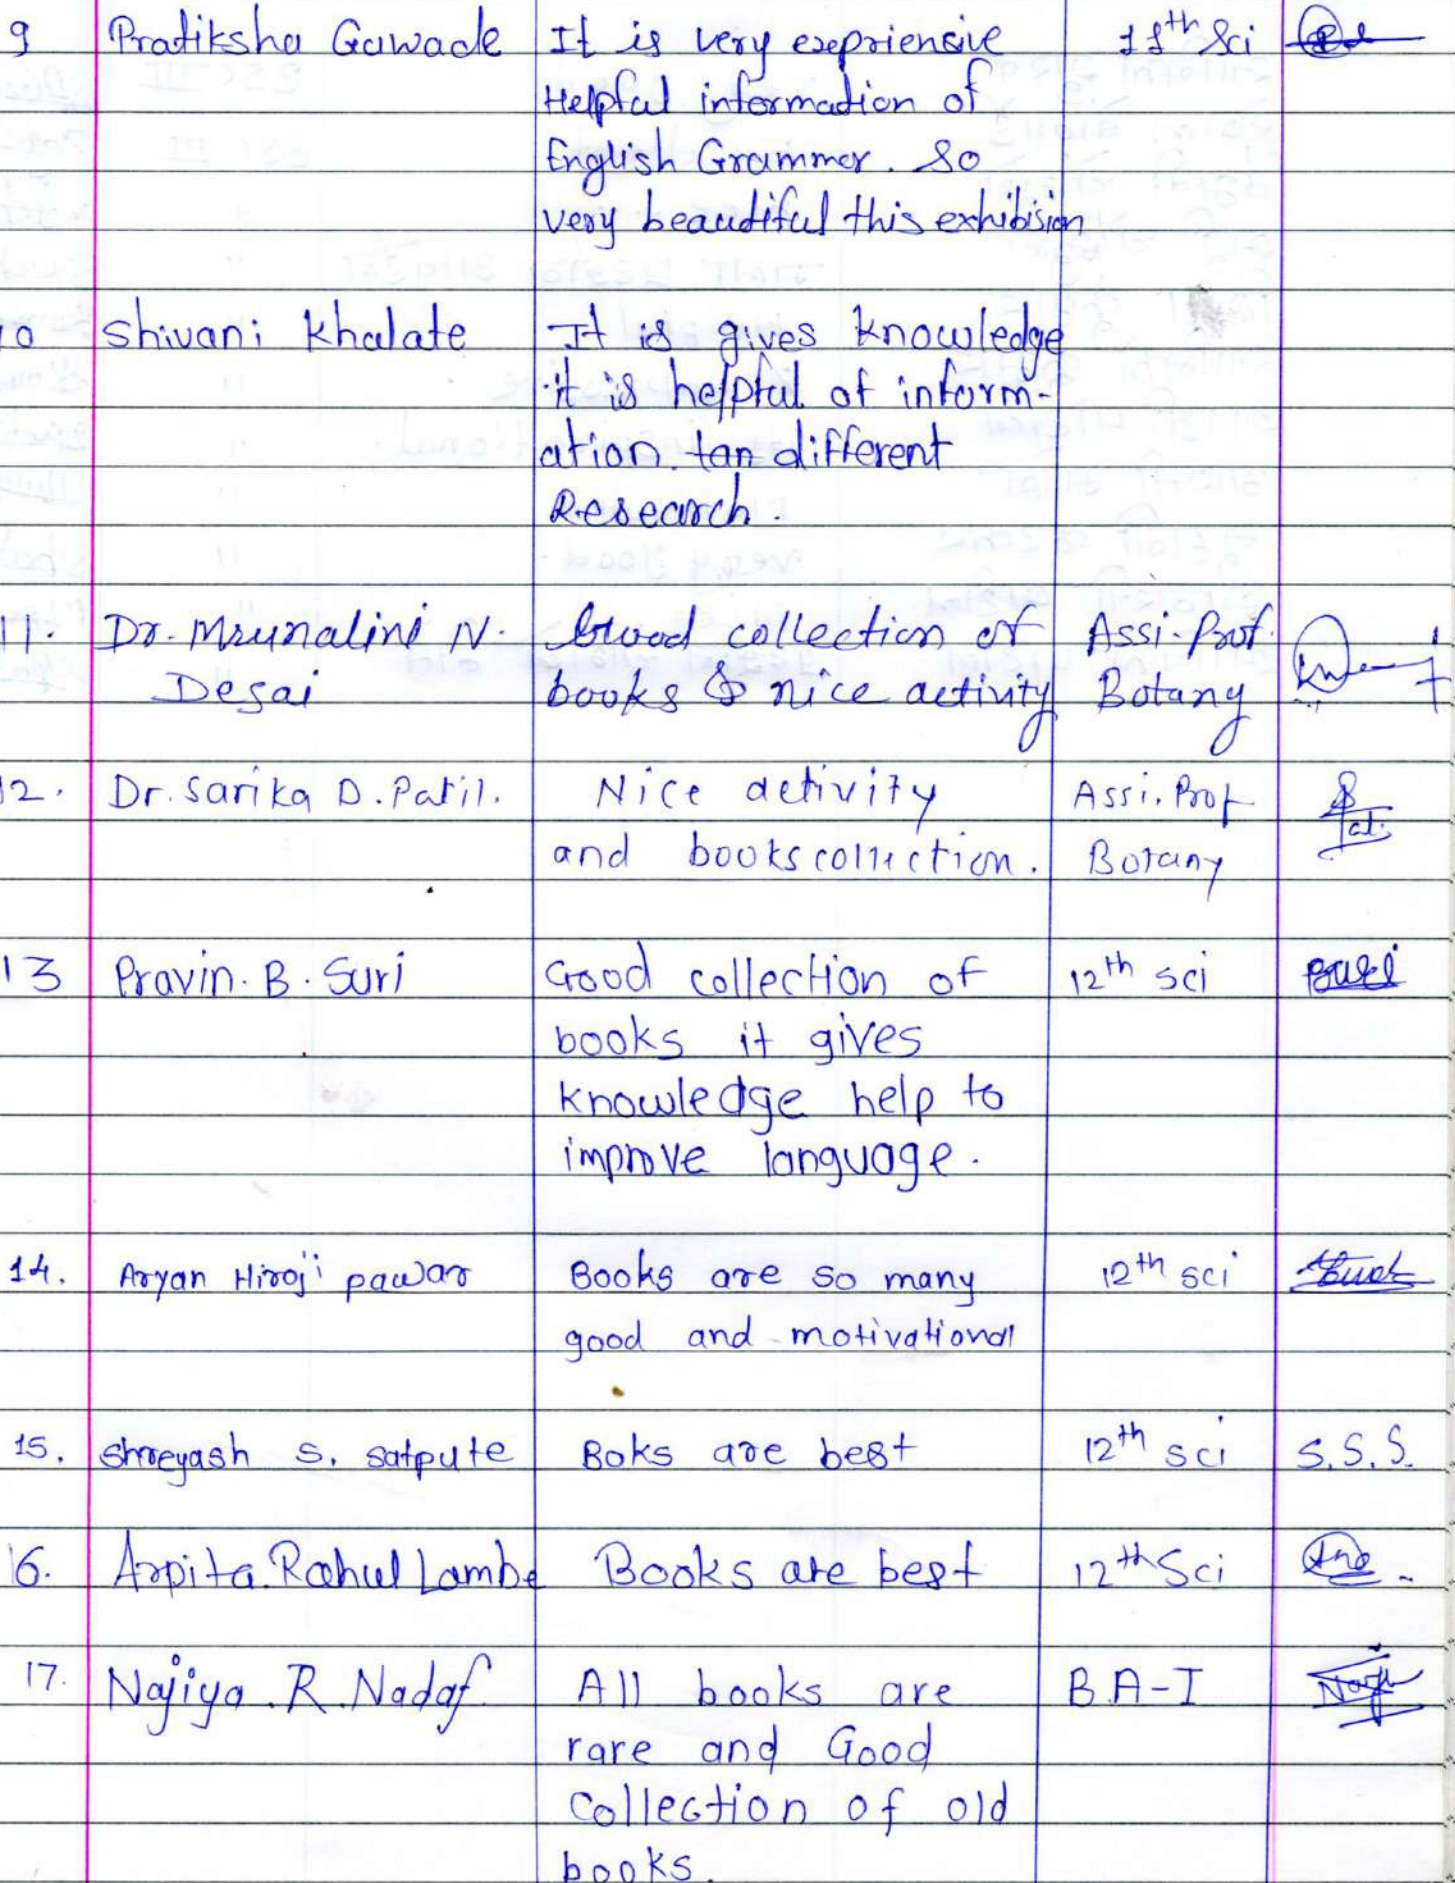 9 Pratiksha Gawade It is very exepriensive 11th Sci
Helpful information of
English Grammer. So
very beautiful this exhibision
10 Shivani Khalate It is gives knowledge
it is helpful of inform-
ation. tan different
Research.
11. Dr. Mrunalini N. Good collection of Assi. Prof.
Desai books & nice activity Botany
12. Dr. Sarika D. Patil. Nice activity Assi. Prof
and books collection. Botany
13 Pravin. B. Suri Good collection of 12th sci
books it gives
knowledge help to
improve language.
14. Aryan Hiroji pawar Books are so many 12th sci
good and motivational
15. Shreyash S. Satpute Boks are best 12th sci S.S.S.
16. Arpita. Rahul Lambe Books are best 12th Sci
17. Najiya. R. Nadaf All books are B.A-I
rare and Good
collection of old
books.